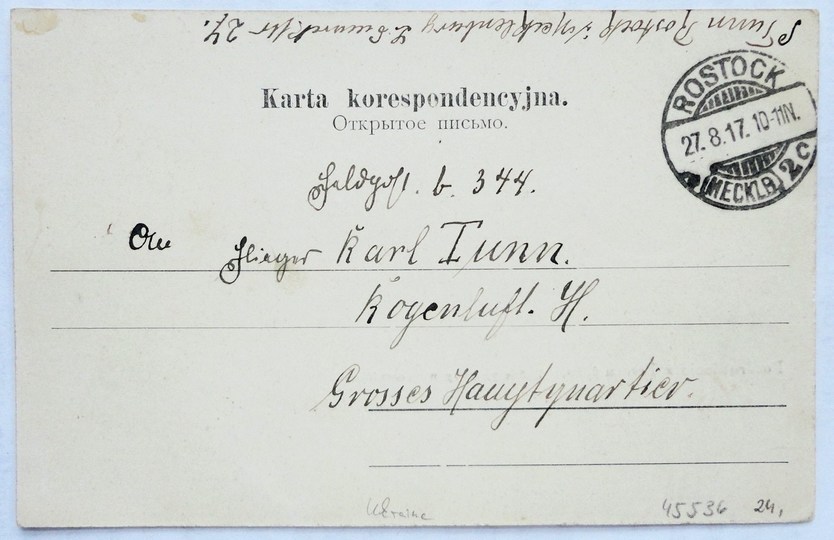 Tunn Rostock i/Mecklenburg Nr 27.
Karta korespondencyjna.
Открытое письмо.
ROSTOCK
27.8.17.10-11N.
(MECKLB) 2c
Feldpost. b. 344.
An Flieger Karl Tunn.
Kogenluft. H.
Grosses Hauptquartier.
Ukraine
45536 24,